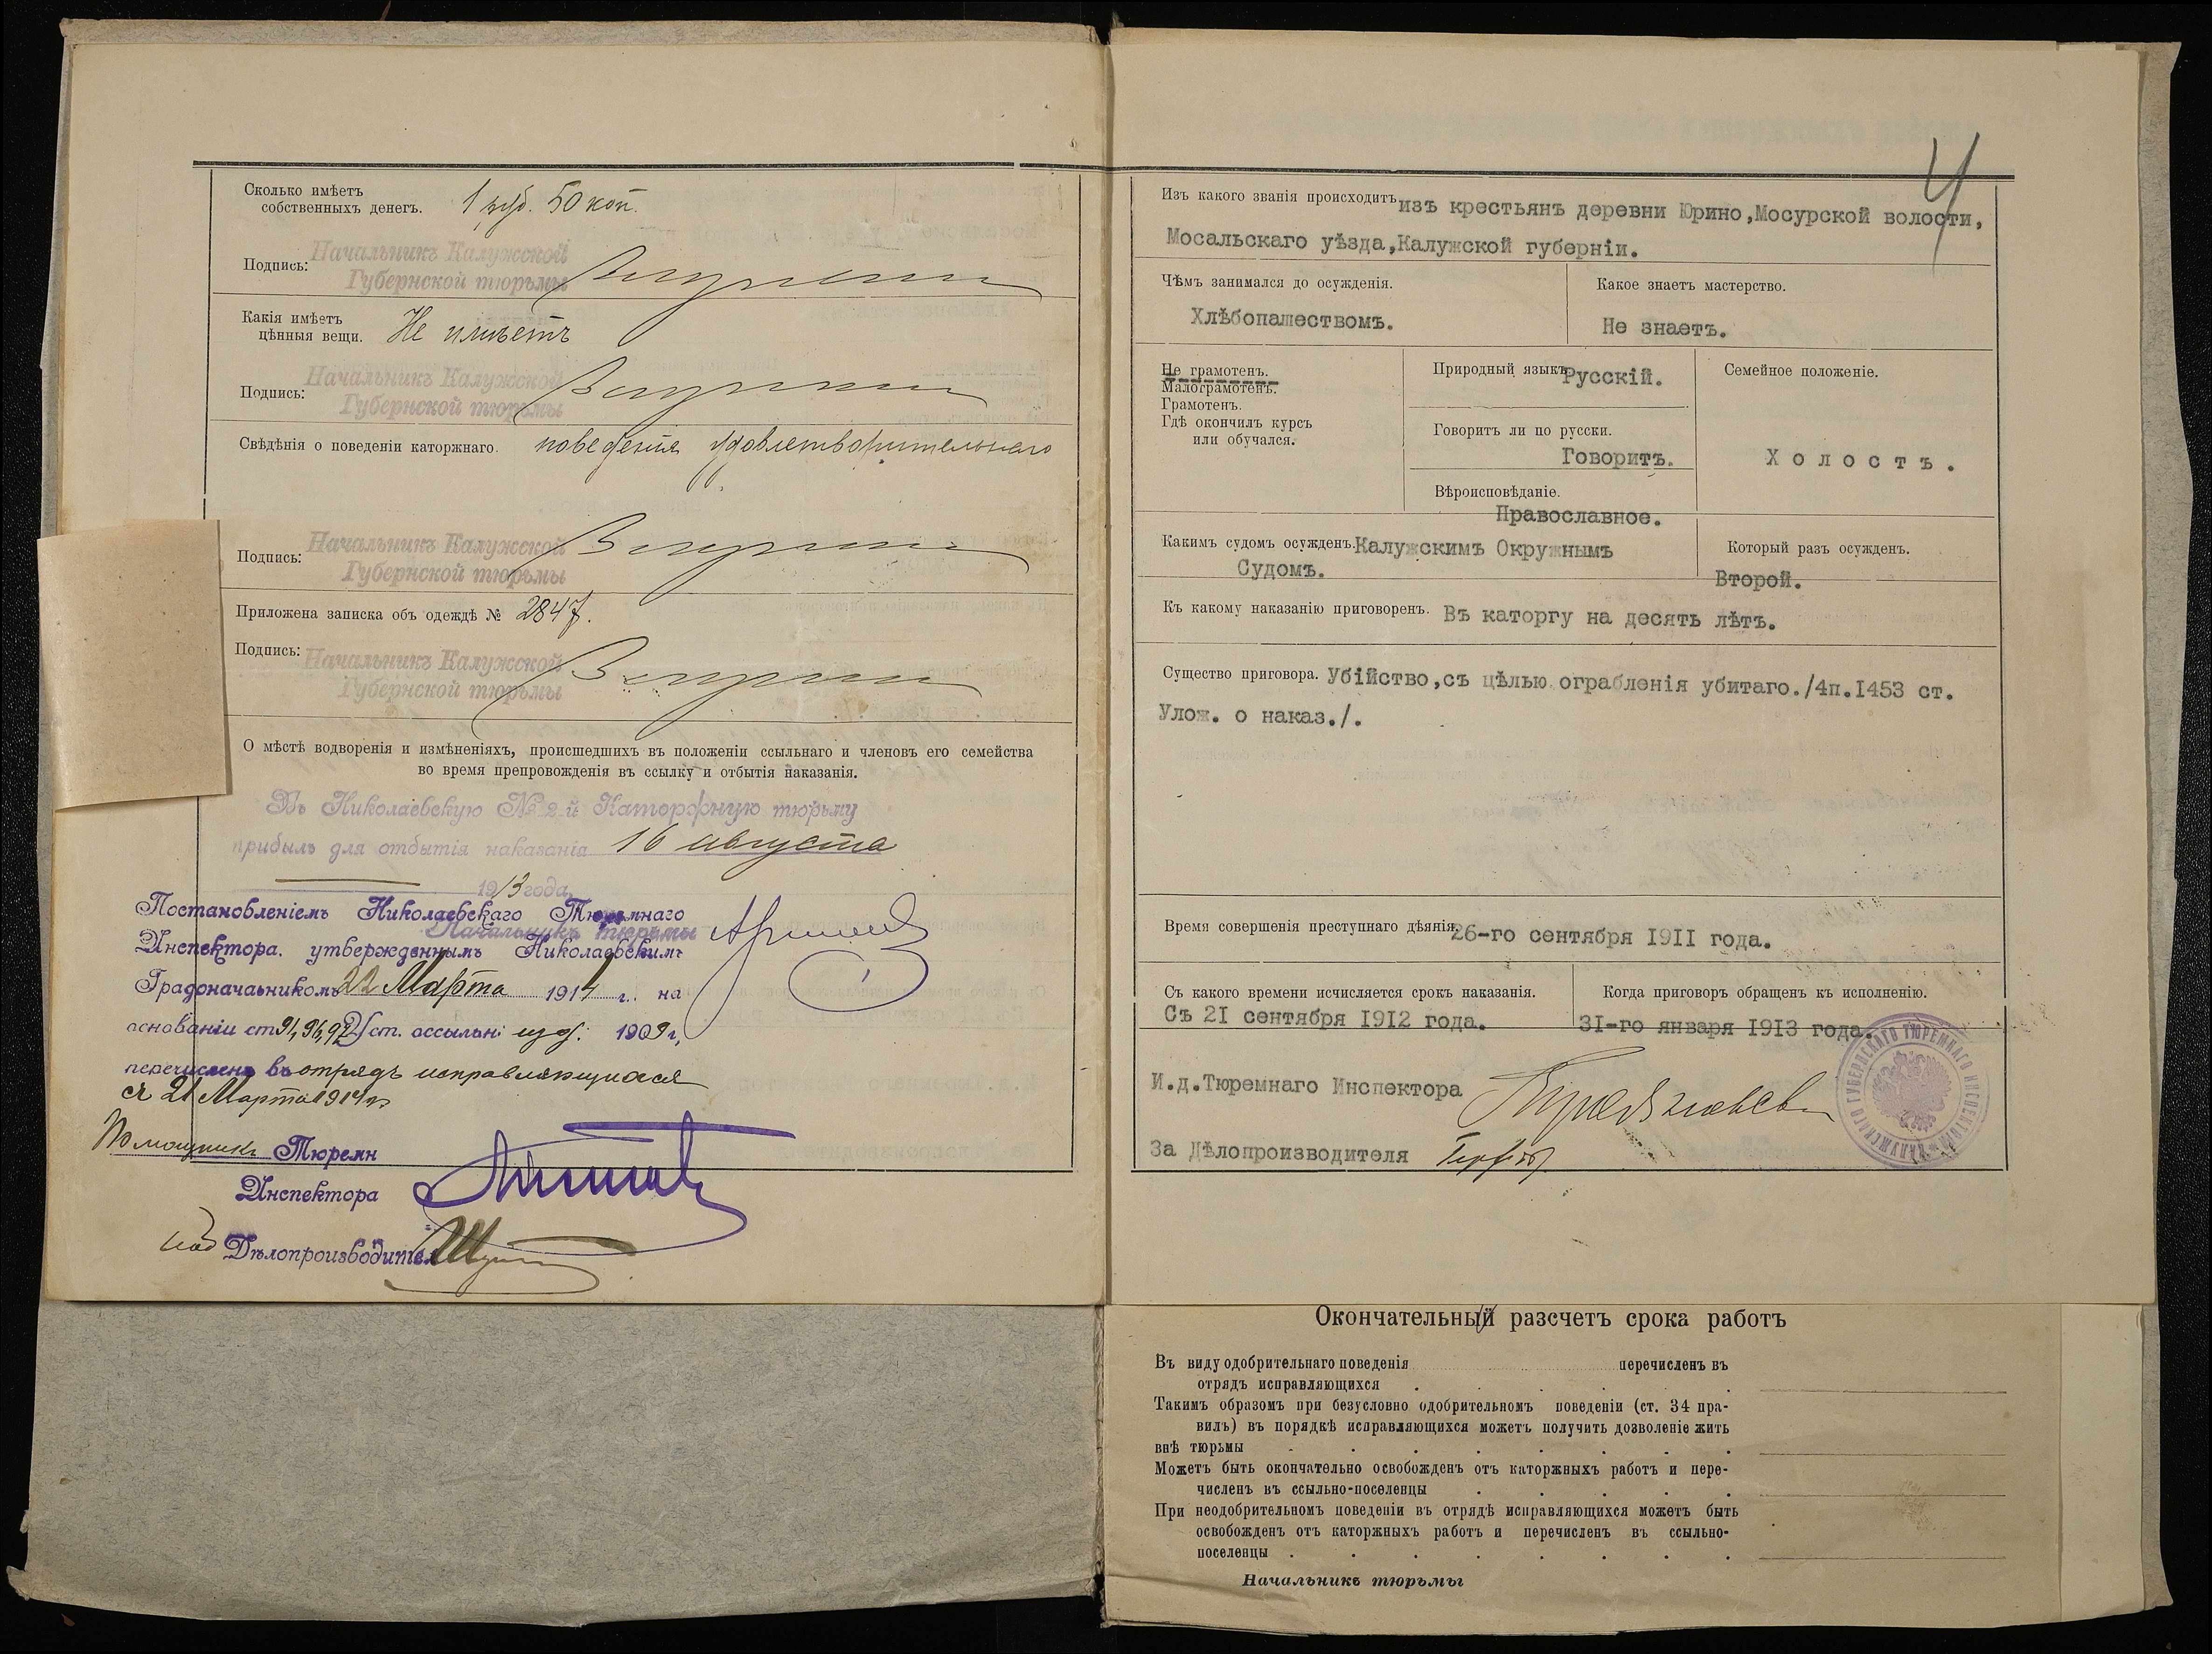 Сколько имѣетъ
собственныхъ денегъ. 1 руб. 50 коп.
Начальникъ Калужской
Подпись:
Губернской тюрьмы
Какія имѣетъ
цѣнныя вещи. Не имѣетъ
Начальникъ Калужской
Подпись:
Губернской тюрьмы
Свѣдѣнія о поведеніи каторжнаго. поведенія удовлетворительнаго
Начальникъ Калужской
Подпись:
Губернской тюрьмы
Приложена записка объ одеждѣ № 2847.
Подпись:
Начальникъ Калужской
Губернской тюрьмы
О мѣстѣ водворенія и измѣненіяхъ, происшедшихъ въ положеніи ссыльнаго и членовъ его семейства
во время препровожденія въ ссылку и отбытія наказанія.
Въ Николаевскую № 2-й Каторжную тюрьму
прибылъ для отбытія наказанія 16 августа
1913 года
Постановленіемъ Николаевскаго Тюремнаго
Начальникъ тюрьмы
Инспектора. утвержденнымъ Николаевскимъ
Градоначаьникомъ 22 Марта 1914 г. на
основаніи ст 94, 96, 97 Уст. ссыльн: изд: 1909 г,
перечисленъ въ отрядъ исправляющихся
съ 21 Марта 1914 г.
Помощникъ Тюремн
Инспектора
Дѣлопроизводител
4
Изъ какого званія происходитъ изъ крестьянъ деревни Юрино,Мосурской волости,
Мосальскаго уѣзда,Калужской губерніи.
Чѣмъ занимался до осужденія.
Хлѣбопашествомъ.
Какое знаетъ мастерство.
Не знаетъ.
Не грамотенъ.
Малограмотенъ.
Грамотенъ.
Гдѣ окончилъ курсъ
или обучался.
Природный языкъ Русскій.
Говоритъ ли по русски.
Говоритъ.
Вѣроисповѣданіе.
Православное.
Семейное положеніе.
Холостъ.
Какимъ судомъ осужденъ. Калужскимъ Окружнымъ
Судомъ.
Который разъ осужденъ.
Второй.
Къ какому наказанію приговоренъ. Въ каторгу на десять лѣтъ.
Существо приговора. Убійство,съ цѣлью ограбленія убитаго./4п.I453 ст.
Улож. о наказ./.
Время совершенія преступнаго дѣянія 26-го сентября I9II года.
Съ какого времени исчисляется срокъ наказанія.
Съ 2I сентября I9I2 года.
Когда приговоръ обращенъ къ исполненію.
3I-го января I9I3 года.
И.д.Тюремнаго Инспектора
За Дѣлопроизводителя
КАЛУЖСКАГО ГУБЕРНСКАГО ТЮРЕМНАГО ИНСПЕКТОРА
Окончательный разсчетъ срока работъ
Въ виду одобрительнаго поведенія перечисленъ въ
отрядъ исправляющихся
Такимъ образомъ при безусловно одобрительномъ поведеніи (ст. 34 пра-
вилъ) въ порядкѣ исправляющихся можетъ получить дозволеніе жить
внѣ тюрьмы
Можетъ быть окончательно освобожденъ отъ каторжныхъ работъ и пере-
численъ въ ссыльно-поселенцы
При неодобрительномъ поведеніи въ отрядѣ исправляющихся можетъ быть
освобожденъ отъ каторжныхъ работъ и перечисленъ въ ссыльно-
поселенцы
Начальникъ тюрьмы